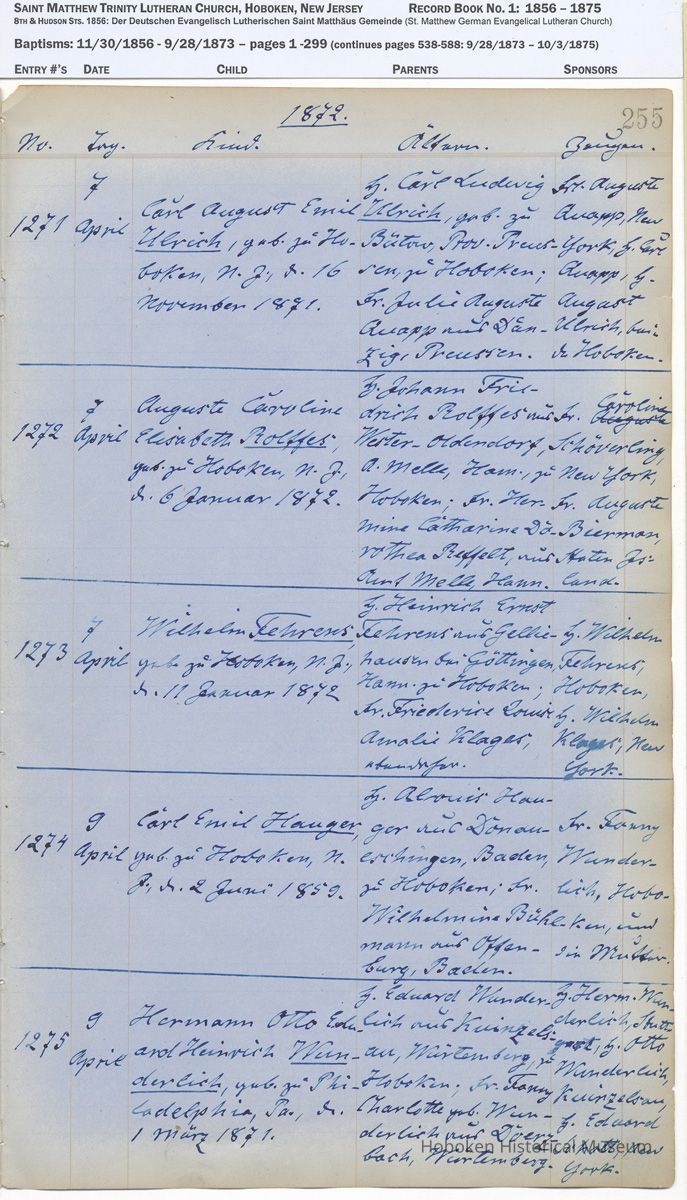 SAINT MATTHEW TRINITY LUTHERAN CHURCH, HOBOKEN, NEW JERSEY RECORD BOOK NO. 1: 1856 – 1875
8TH & HUDSON STS. 1856: Der Deutschen Evangelisch Lutherischen Saint Matthäus Gemeinde (St. Matthew German Evangelical Lutheran Church)
Baptisms: 11/30/1856 - 9/28/1873 – pages 1 -299 (continues pages 538-588: 9/28/1873 – 10/3/1875)
ENTRY #'S DATE CHILD PARENTS SPONSORS
1872. 255
No. Tag. Kind. Ältern. Zeugen.
1271
7
April
Carl August Emil
Ulrich, geb. zu Ho-
boken, N. J., d. 16
November 1871.
H. Carl Ludwig
Ulrich, geb. zu
Bütow, Prov. Preus-
sen, zu Hoboken;
Fr. Julie Auguste
Quapp aus Dan-
zig, Preussen.
Fr. Auguste
Quapp, New
York, H. Carl
Quapp, H.
August
Ulrich, bei-
de Hoboken.
1272
7
April
Auguste Caroline
Elisabeth Rolffes,
geb. zu Hoboken, N. J.,
d. 6 Januar 1872.
H. Johann Frie-
drich Rolffes aus
Wester-Oldendorf,
A. Melle, Han., zu
Hoboken; Fr. Her-
mine Catharine Do-
rothea Reffelt, aus
Amt Melle, Hann.
Caroline
Fr. Auguste
Schöverling,
New York,
Fr. Auguste
Bierman,
Staten Is-
land.
1273
7
April
Wilhelm Fehrens,
geb. zu Hoboken, N. J.,
d. 11 Januar 1872
H. Heinrich Ernst
Fehrens aus Gellie-
hausen bei Göttingen,
Hann. zu Hoboken;
Fr. Friederice Louise
Amalie Klages,
ebendaher.
H. Wilhelm
Fehrens,
Hoboken,
H. Wilhelm
Klages, New
York.
1274
9
April
Carl Emil Hauger,
geb. zu Hoboken, N.
J., d. 2 Juni 1859.
H. Alouis Hau-
ger aus Donau-
eschingen, Baden,
zu Hoboken; Fr.
Wilhelmine Bühl-
mann aus Offen-
burg, Baden.
Fr. Fanny
Wunder-
lich, Hobo-
ken, und
die Mutter.
1275
9
April
Hermann Otto Edu-
ard Heinrich Wun-
derlich, geb. zu Phi-
ladelphia, Pa., d.
1 März 1871.
H. Eduard Wunder-
lich aus Kuinzels-
au, Würtemberg, zu
Hoboken; Fr. Fanny
Charlotte geb. Wun-
derlich aus
bach, Würtemberg.
H. Herm. Wun-
derlich, Stutt-
gart, H. Otto
Wunderlich,
Kuinzelsau,
H. Eduard
New
York.
Hoboken Historical Museum